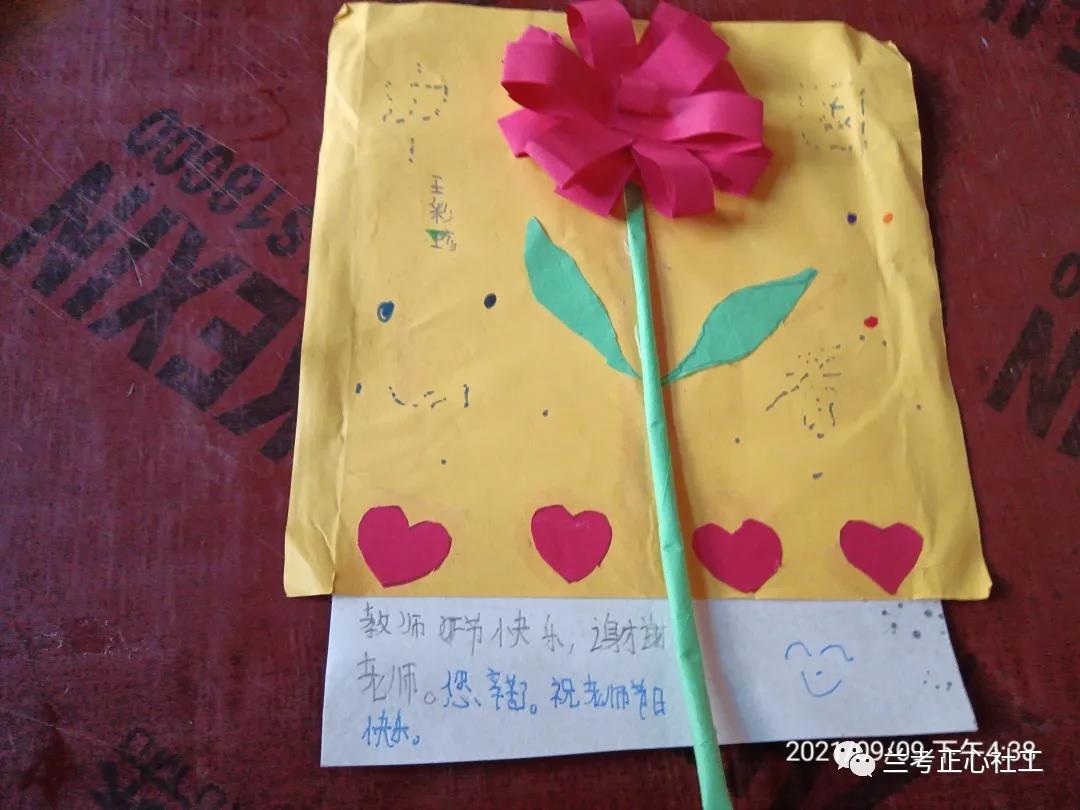 S18000
KEXIN
王彩
教师节快乐，谢谢
老师。您辛苦了。祝老师节日
快乐。
2021/09/09 下午4:38
兰考正心社工